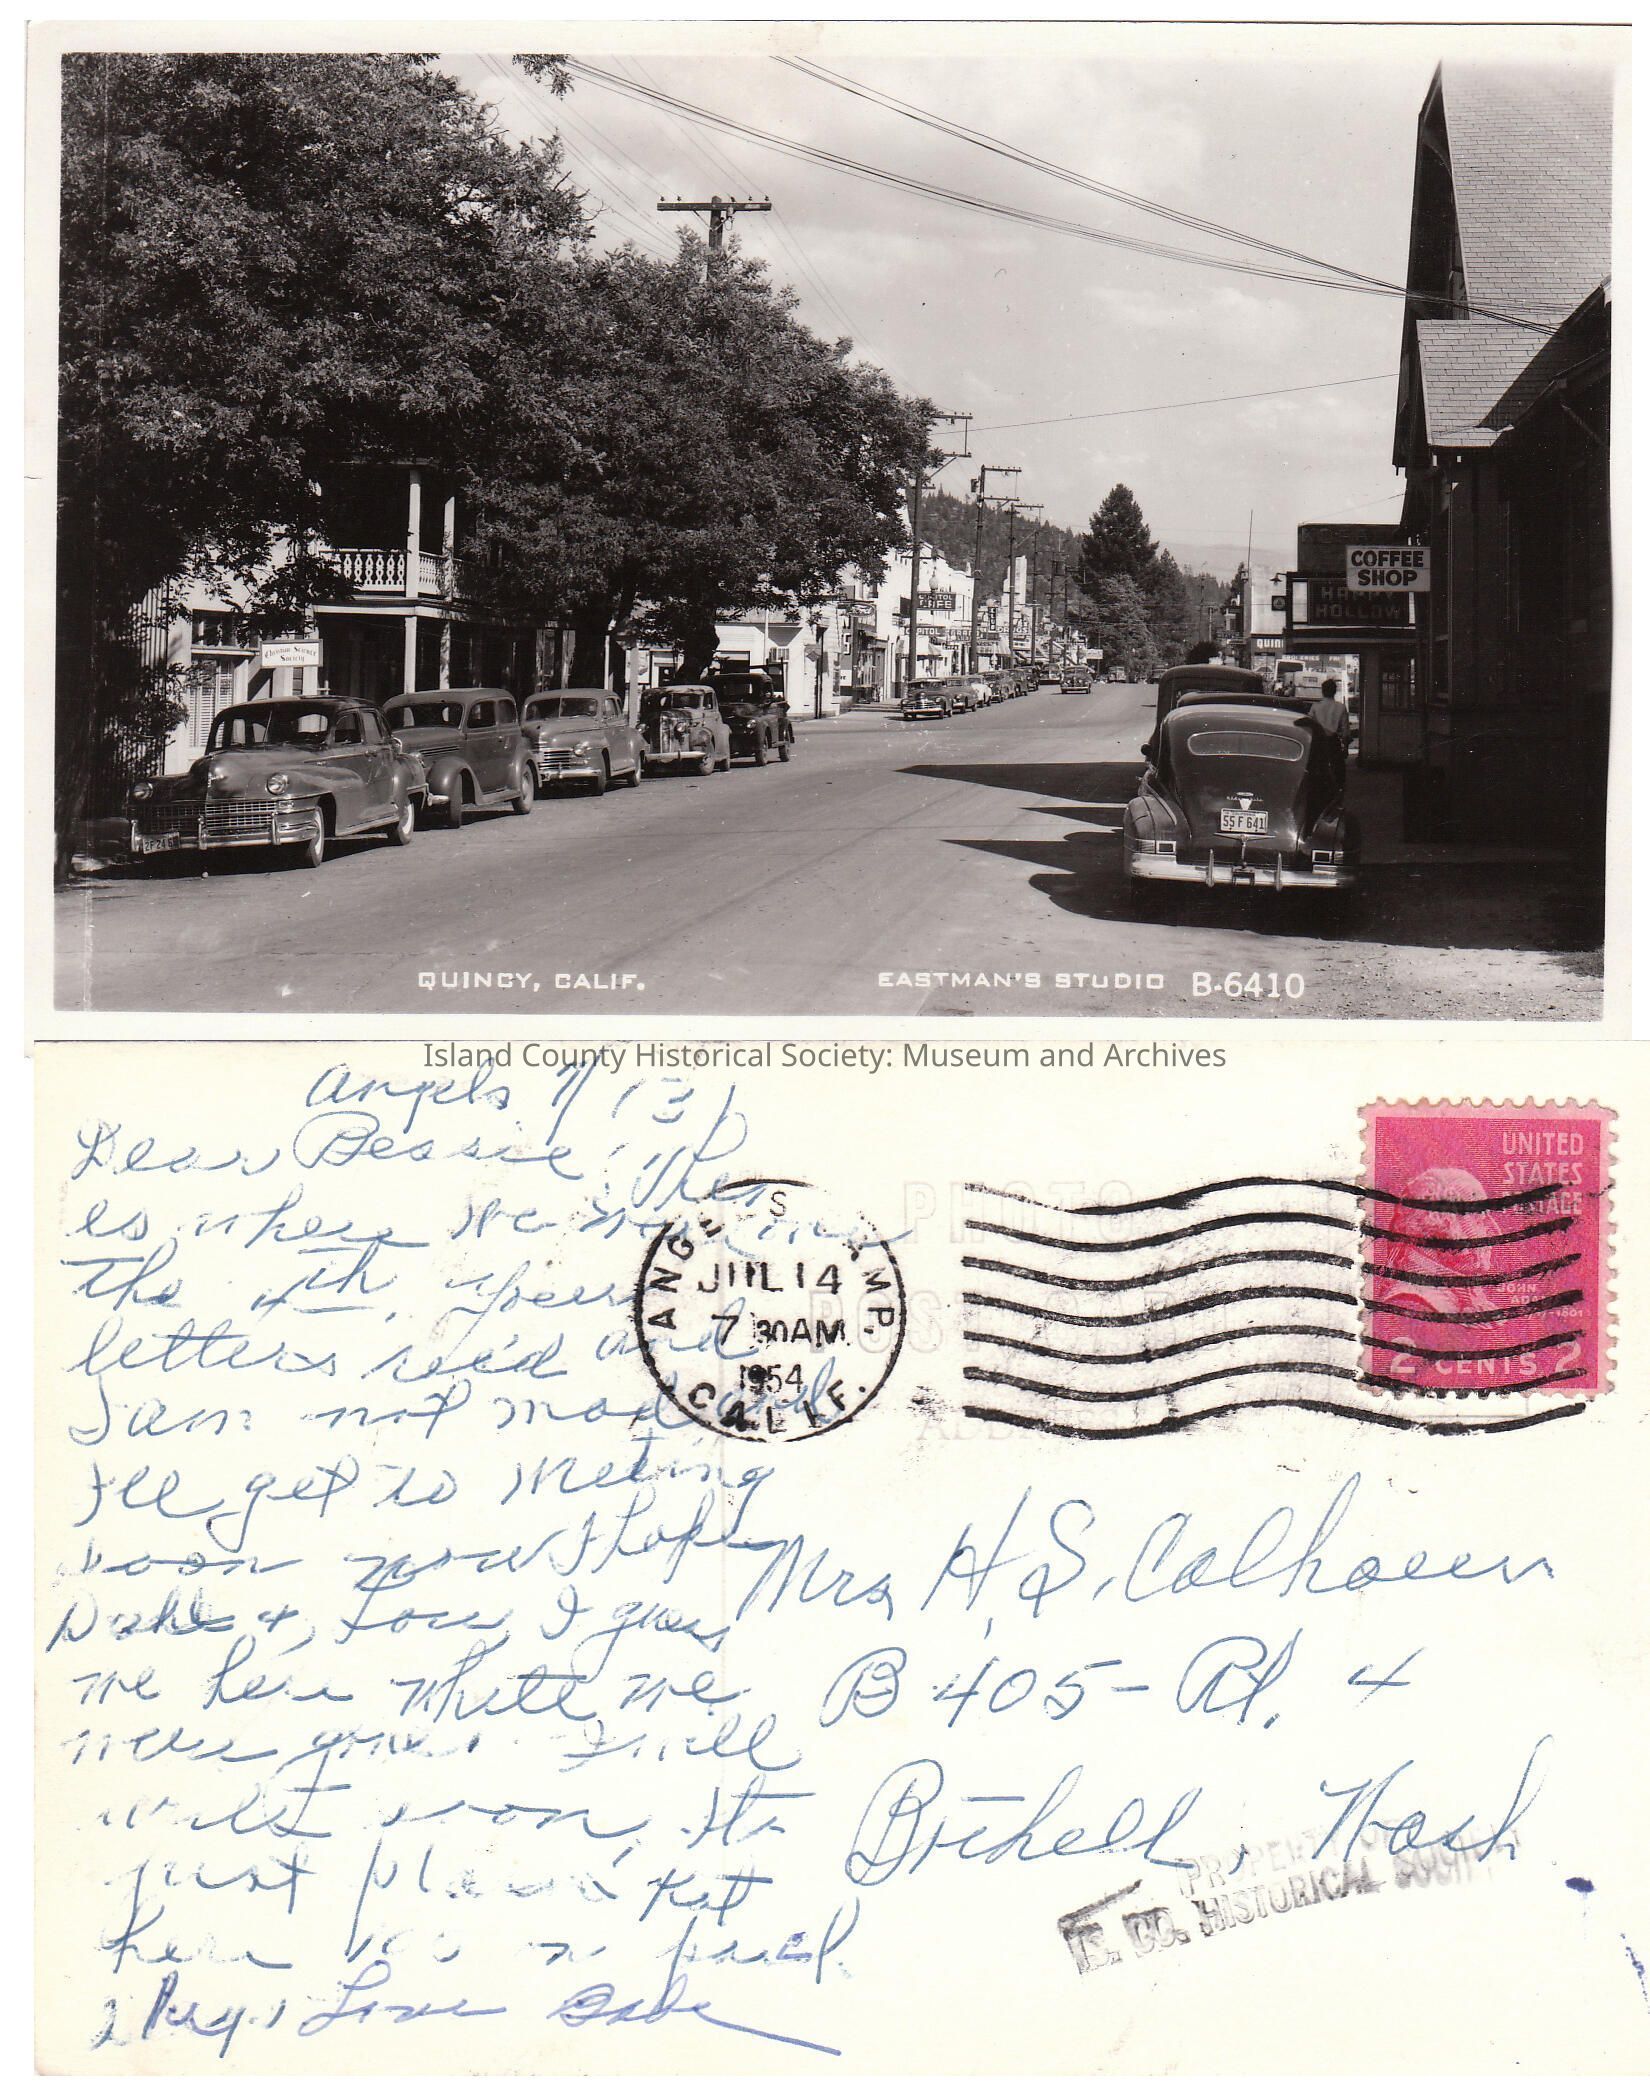 Christian Science
Society
CAFE
COFFEE
SHOP
HAPPY
HOLLOW
QUIN
2F 24 6
55 F 641
QUINCY, CALIF.
EASTMAN'S STUDIO B-6410
Island County Historical Society: Museum and Archives
Angels 7/13
Dear Bessie: This
is where we were on
the 4th. Your
letters rec'd and
I am not mad and
I'll get to writing
soon now I hope
I guess
we here white me
I will
write soon, its
just plain hot
here 100 in
Love Babe
ANGELS CAMP.
JUL 14
7 30 AM
1954
CALIF.
PHOTO
POST CARD
UNITED
STATES
POSTAGE
JOHN
ADAMS
2 CENTS 2
Mrs H. S. Calhoun
B 405 - Rt. 4
Bothell, Wash
PROPERTY OF
IS. CO. HISTORICAL SOCIETY